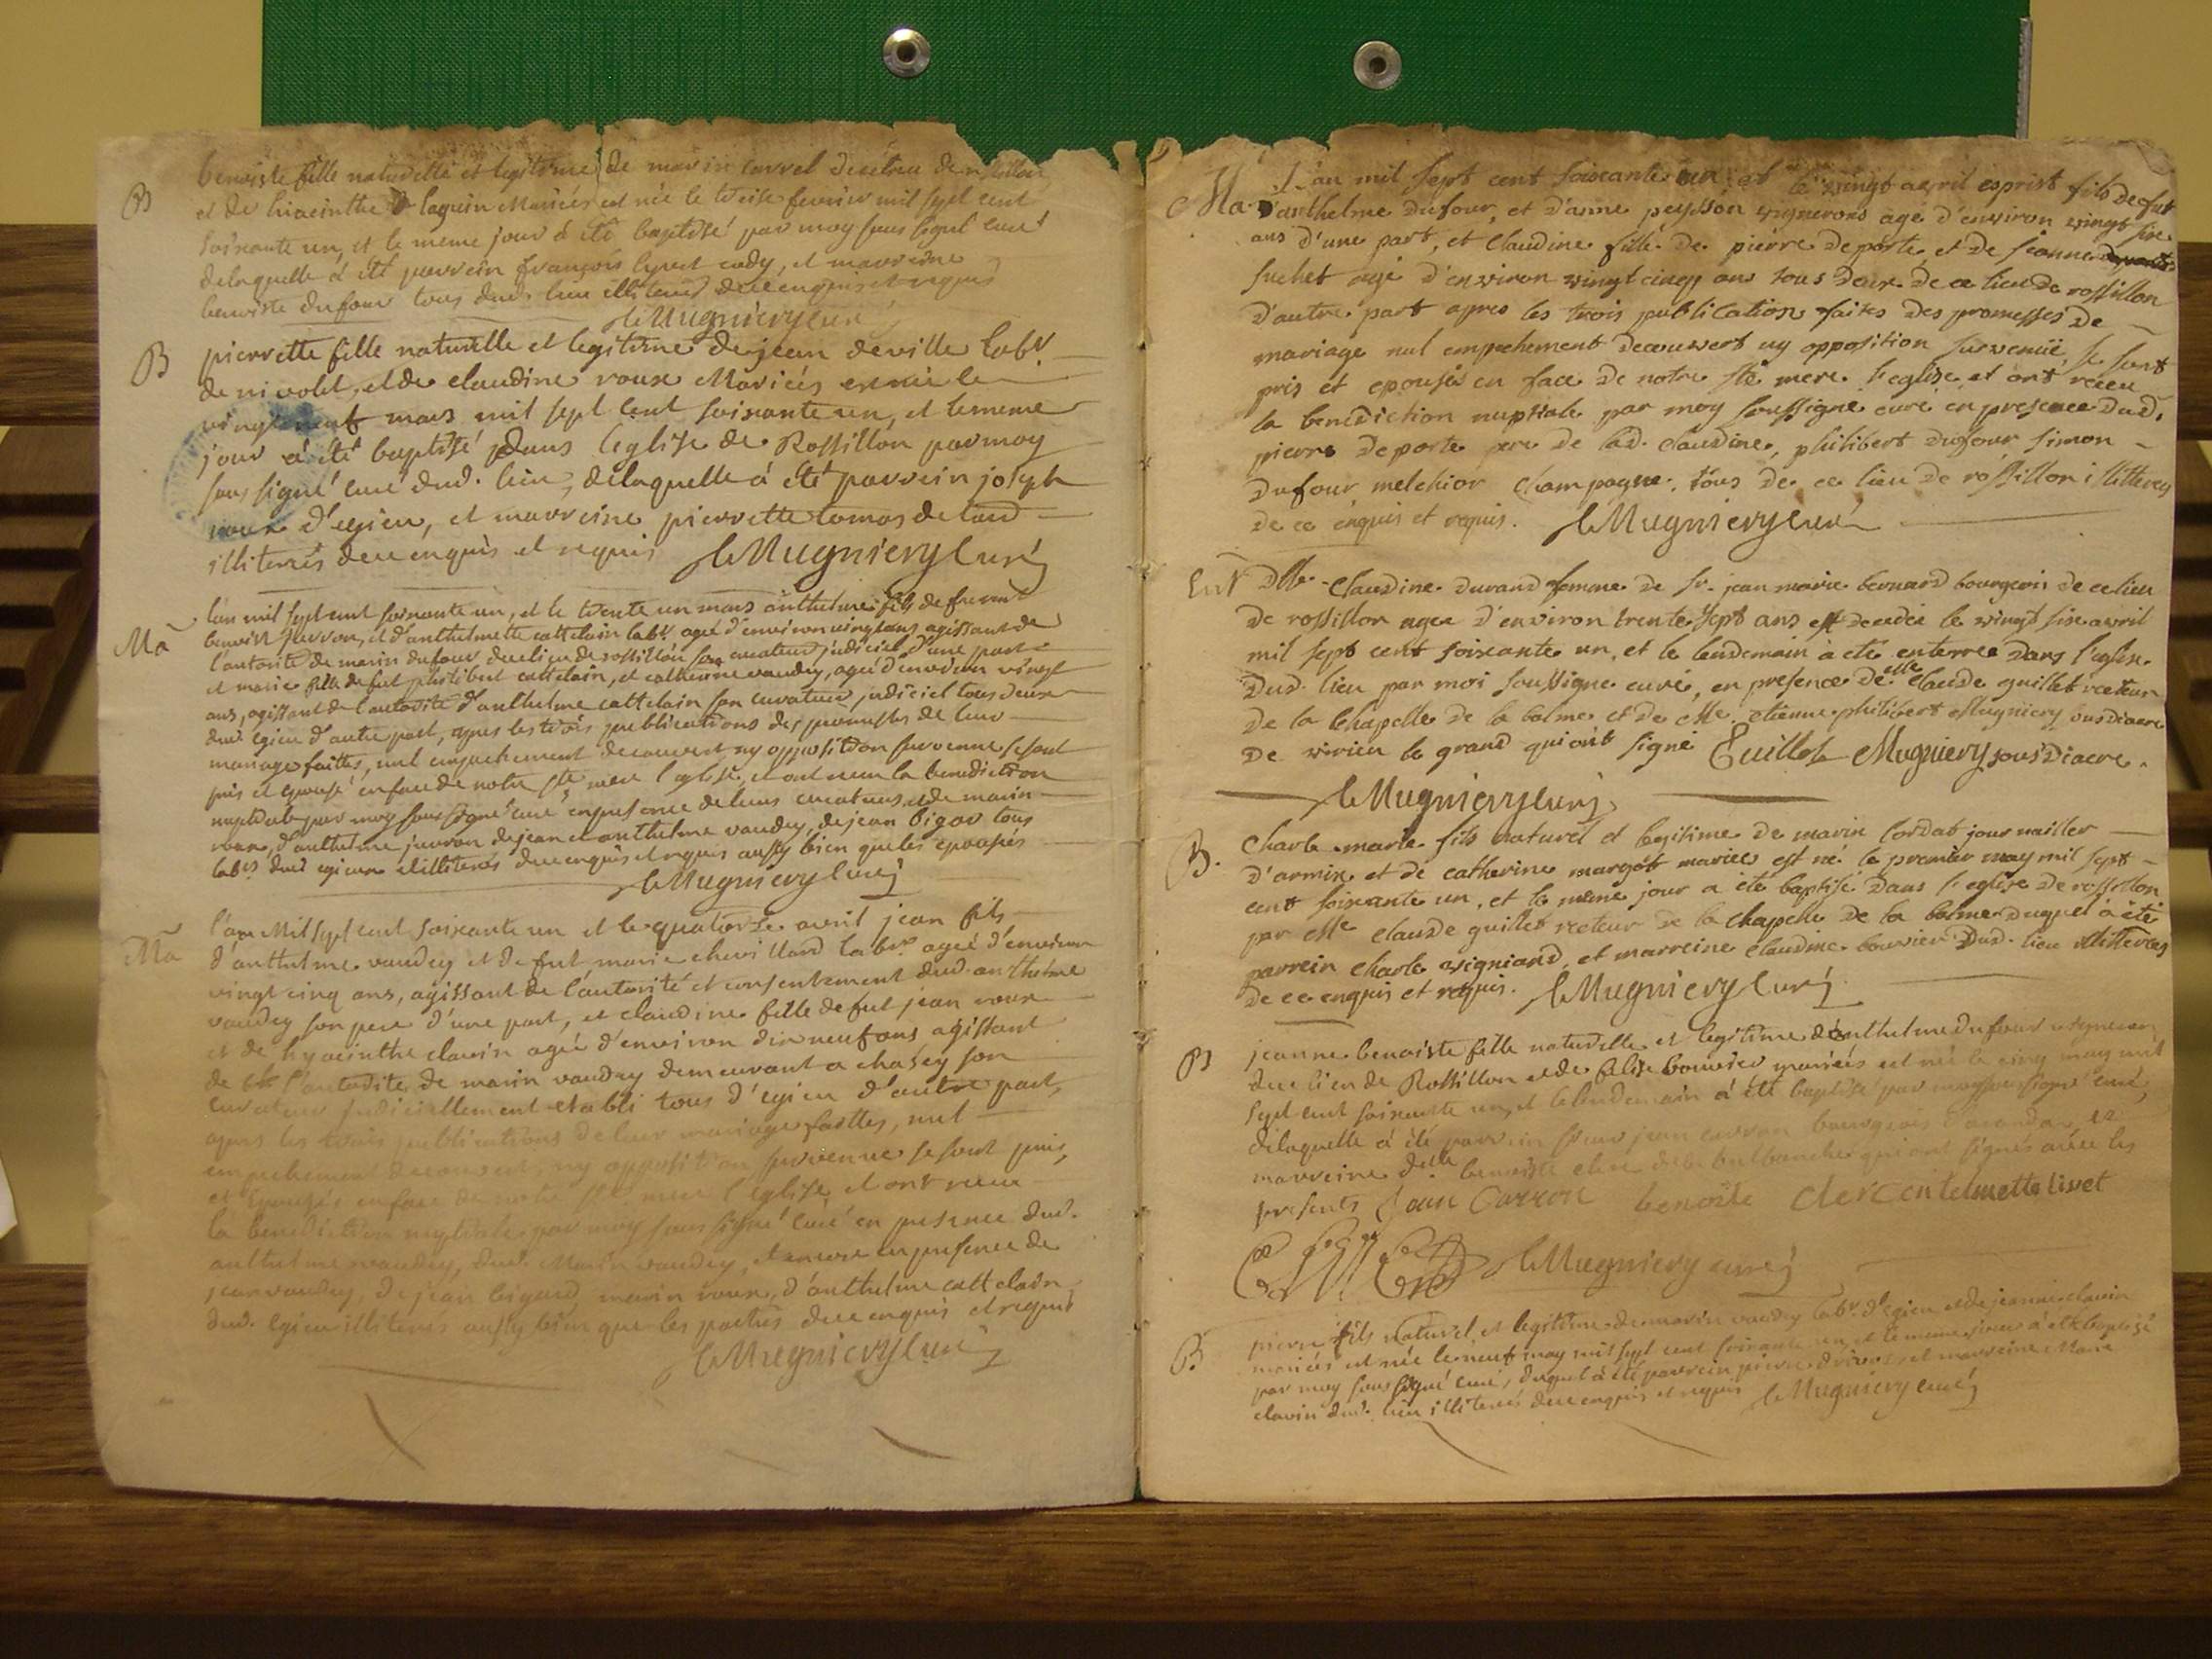 B benoiste fille naturelle et legitime de marin carrel dece lieu de rossillon
et de hiacinthe laguin Mariés est née le treise fevrier mil sept cent
soisante un, et le meme jour à été baptisé par moy sous signé curé
delaquelle à été parrein françois cady, et marreine
benoiste dufour tous dud. lieu illiterés dece enquis et requis
leMugnieryCuré
B pierrette fille naturelle et legitime de jean deville labr.
de nivolet, et de claudine roux Mariés est née le
vingt neuf mars mil sept cent soisante un, et le meme
jour à été baptisé dans leglise de Rossillon par moy
sous signé curé dud. lieu, delaquelle à été parrein joseph
roux d'egieu, et marreine pierrette tomas
illiterés dece enquis et requis leMugnieryCuré
Ma l'an mil sept cent soisante un, et le trente un mars anthelme fils de feu
benoist juvron, et d'anthelmette cattelain labr. agé d'environ vingt ans agissant de
l'autorité de marin dufour dece lieu de rossillon son curateur judiciel d'une part
et marie fille de fut philibert cattelain, et catherine vaudey, agée d'environ vingt
ans, agissant de l'autorité d'anthelme cattelain son curateur judiciel tous deux
dud. egieu d'autre part, apres les trois publications des promesses de leur
mariage faittes, nul empechement decouvert ny opposition survenue se sont
pris et epousé en face de notre ste mere l'eglise, et ont receu la benediction
nuptiale par moy sous signé curé en presence de leurs curateurs, et de marin
roux, d'anthelme juvron, de jean et anthelme vaudey, de jean bigot tous
labrs. dud. egieu illiterés dece enquis et requis aussy bien que les epousés
leMugnieryCuré
Ma l'an Mil sept cent soisante un et le quatorze avril jean fils
d'anthelme vaudey et de fut marie chevillard labr. agé d'environ
vingt cinq ans, agissant de l'autorité et consentement dud. anthelme
vaudey son pere d'une part, et claudine fille de fut jean roux
et de hyacinthe clavin agée d'environ dix neuf ans agissant
de l'autorité de marin vaudey demeurant a chasey son
curateur judiciellement etabli tous d'egieu d'autre part,
apres les trois publications de leur mariage faittes, nul
empechement decouvert, ny opposition survenue se sont pris,
et epousés en face de notre ste mere l'eglise, et ont receu
la benediction nuptiale par moy sous signé curé en presence dud.
anthelme vaudey, dud. Marin vaudey, et encore en presence de
jean vaudey, de jean bigard, marin roux, d'anthelme cattelain,
dud. egieu illiterés aussy bien que les parties dece enquis et requis
leMugnieryCuré
Ma. L'an mil sept cent soixante un et le vingt avril esprist fils de fut
D'anthelme Dufour, et D'anne peysson vignerons agé d'environ vingt six
ans d'une part, et Claudine fille de pierre Deporte et de jeanne
suchet agé d'environ vingt cinq ans tous Deux De ce lieu De rossillon
D'autre part apres les trois publications faites Des promesses De
mariage nul empechement Decouvert ny opposition survenüe, se sont
pris et epousés en face De notre ste mere l'eglise et ont receu
la benediction nuptiale par moy soussigne curé en presence Dud.
pierre Deporte pere De lad. Claudine, philibert Dufour, simon
Dufour melchior Champagne, tous De ce lieu De rossillon illitteres
De ce enquis et requis. leMugnieryCuré
Ent Dlle Claudine Durand femme De Sr. jean marie bernard bourgeois De ce lieu
De rossillon agee D'environ trente sept ans est decedée le vingt six avril
mil sept cent soixante un, et le lendemain a été enterrée Dans l'eglise
Dud. lieu par moi soussigne curé, en presence De Mre Claude guillet recteur
De la Chapelle De la balme et De Mre etienne philibert Mugniery sousdiacre
De virieu le grand qui ont signé Guillet Mugniery sousDiacre.
leMugnieryCuré
B. Charle marie fils naturel et legitime De marin Cordat journailler
D'armix et De catherine margot mariés est né le premier may mil sept
cent soixante un, et le même jour a été baptisé Dans l'eglise De rossillon
par Mre Claude guillet recteur De la Chapelle De la balme Duquel à été
parrein Charle vigniand, et marreine Claudine bouvier Dud. lieu illitteres
De ce enquis et requis. leMugnieryCuré
B jeanne benoiste fille naturelle et legitime d'anthelme dufour vigneron
dece lieu de Rossillon et de felise bouvier mariés est née le cinq may mil
sept cent soisante un, et le lendemain à été baptisé par moy sous signé curé,
delaquelle à été parrein sieur jean carron bourgeois et
marreine delle benoiste clerc qui ont signés avec les
presents Jean Carron benoîte clerc entelmette livet
leMugniery curé
B. pierre fils naturel et legitime de marin vaudey labr. d'egieu et de jeanne clavin
mariés est née le neuf may mil sept cent soisante un, et le meme jour à été baptisé
par moy sous signé curé, duquel à été parrein pierre et marreine Marie
clavin dud. lieu illiteré dece enquis et requis leMugnieryCuré